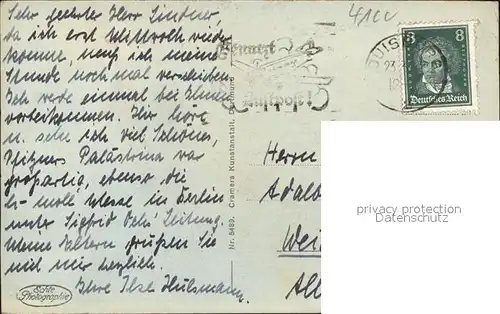 Sehr geehrter Herr Lindner,
da ich erst Mittwoch wieder
komme, muß ich meine
Stunde noch mal verschieben.
Ich rede einmal bei Ihnen
vorbeikommen. Hier höre
u. sehe ich viel Schönes,
Pfitzners Palästrina war
großartig, ebenso die
h-moll Messe in Berlin
unter Sigfrid Ochs' Leitung.
Meine Eltern grüßen Sie
mit mir herzlich.
Ihre Ilse Hülsmann.
Echte
Photographie
Nr. 8489. Cramers Kunstanstalt, Dortmund
41cc
Benutzt
Luftpost!
DUIS
23.
3 8
Deutsches Reich
Herrn
Adalb
Wei
All
privacy protection
Datenschutz